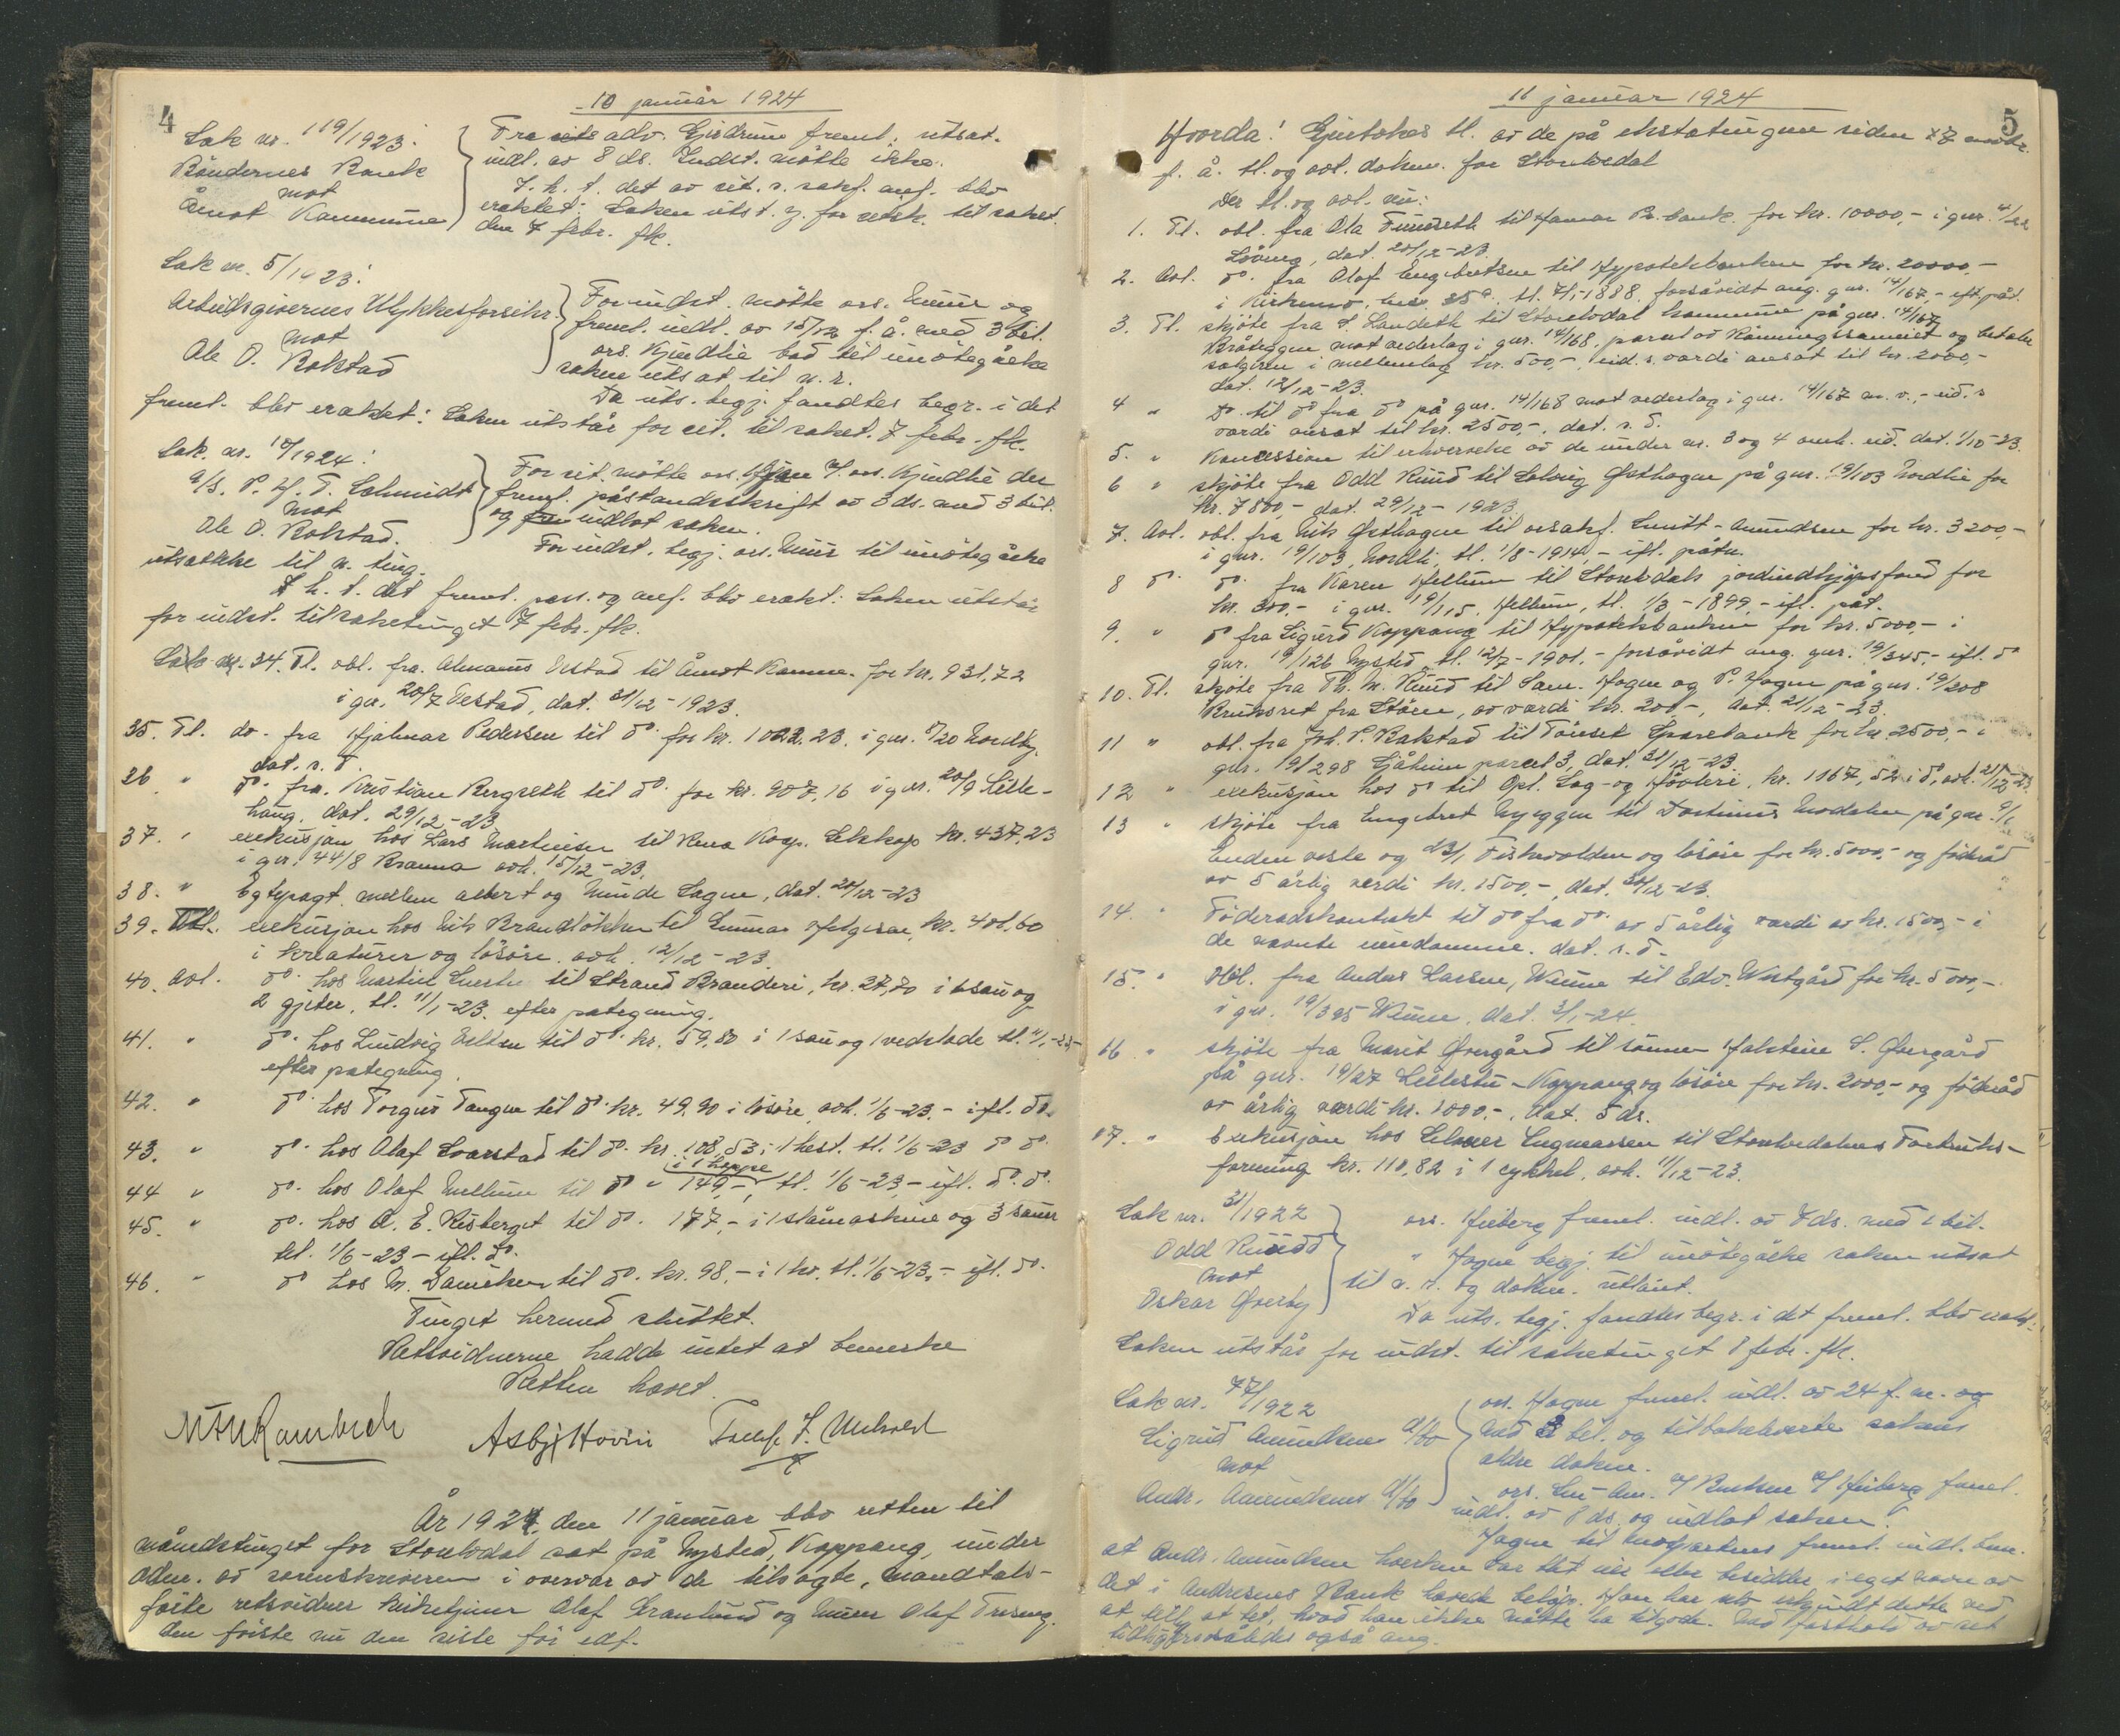 4
10 januar 1924
Sak nr. 119/1923:
Böndernes Bank
mot
Åmot Kommune
Fra adv. Gjerdrum freml. utsat.
indl. av 8 ds. Indst. mötte ikke.
I h. t. det av sit. s. sakf. anf. blev
eraktet: Saken utst. for til saket.
den 7 febr. fk.
Sak nr. 5/1923:
Arbeidsgivernes Ulykkesforsikr.
mot
Ole O. Rokstad
For indst. mötte ors. Muus og
freml. indl. av 15/12 f. å. med 3 bil.
ors. Kjendlie bad til imötegåelse
saken utsat til n. r.
Da uts. begj. fandtes begr. i det
freml. blev eraktet: Saken utstår for cit. til saket. 7 febr. fk.
Sak. nr. /1924:
A/S. P. H. T. Schmidt
mot
Ole O. Rokstad.
For sit. mötte ors. ors. Kjendlie der
freml. påstandsskrift av 3 ds. med 3 bil.
og indlot saken.
For indst. begj. ors. Muus til imötegåelse
utsættelse til n. ting.
I h. t. det freml. pass. og anf. blev erakt: Saken utstår
for indst. til saketinget 7 febr. fk.
nr. 34. Tl. obl. fra Vestad til Åmot Komm. for kr. 931,72
i gnr. 20/7 Vestad, dat. 31/12-1923.
35. Tl. do. fra Hjalmar Pedersen til do for kr. 1022.23. i gnr. 8/20 Nordby.
dat. s. d.
36 " do. fra Kristian Bergseth til do. for kr. 907,16 i gnr. 20/9 Lille-
haug, dat. 29/12-23
37. " eksekusjon hos Lars Martinsen til Rena Kop. Selskap kr. 437,23
i gnr. 44/8 Branna avh. 15/12-23.
38. " Egtepagt mellem Albert og Minda Sagen, dat. 20/12-23
39. eksekusjon hos Nils Brandlökken til Gunnar Helgesen, kr. 401,60
i kreaturer og lösöre. avh. 12/12-23.
40. Avl. do. hos Martin til Strand Brænderi, kr. 27,70 i 1 sau og
2 gjeter, tl. 11/1-23. efter pategning.
41. " do. hos Ludvig til do. kr. 59,80 i 1 sau og 1 vedslade tl. 11/1-23-
efter pategning.
42. " do. hos Torgeir Tangen til do. kr. 49.90 i lösöre, avh. 1/6-23.- ifl. do.
43. " do. hos Olaf Svarstad til do. kr. 108,53 i 1 hest. tl. 1/6-23 do do.
44 " do. hos Olaf Mellum til do " 149,-, i 1 hoppe tl. 1/6-23,- ifl. do. do.
45. " do. hos A. E. Risberget til do. 177,- i 1 slåmaskine og 3 sauer
tl. 1/6-23- ifl. do.
46. " do hos M. til do. kr. 98,- i 1 ku. tl. 1/6-23,- ifl. do.
Tinget hermed sluttet.
Retsvidnerne hadde intet at bemerke
Retten hævet.
Asbj. Hovin
År 1924, den 11 januar blev retten til
månedstinget for Storelvdal sat på Nysted, Koppang, under
adm. av sorenskriveren i overvær av de tilsagte, mandtals-
förte retsvidner kirketjener Olaf Granlund og murer Olaf
den förste nu den siste för edf.
5
11 januar 1924
Hvorda! Gjentokes tl. av de på ekstratingene siden 27 novbr.
f. å. tl. og avl. dokum. for Storelvdal
Der tl. og avl. nu:
1. Tl. obl. fra Ola Furuseth til Hamar Pr. bank for kr. 10000,- i gnr.
dat. 20/12-23.
2. Avl. do. fra Olaf Engebretsen til Hypotekbanken for kr. 20000,-
i tl. 7/1-1888 forsåvidt ang. gnr. 14/167,- eft. påt.
3. Tl. skjöte fra S. Landeth til Storelvdal kommune på gnr. 14/167
mot vederlag i gnr. 14/168, parsel av Rönningssameiet og betale
selgeren i mellemlag kr. 500,-, eid. s. værdi ansat til kr. 2000,-
dat. 12/12-23.
4 " do. til do fra do på gnr. 14/168 mot vederlag i gnr. 14/167 m. v.,- eid. s
værdi ansat til kr. 2500,-, dat. s. d.
5. " Koncession til erhvervelse av de under nr. 3 og 4 omh. eid. dat. 1/10-23.
6 " skjöte fra Odd Ruud til Solveig Östhagen på gnr. 19/103 Nordlie for
kr. 7800,- dat. 29/12-1923.
7. Avl. obl. fra Nils Östhagen til orsakf. Smitt-Amundsen for kr. 3200,-
i gnr. 19/103, Nordli, tl. 1/8-1914,- ifl. påtn.
8 do. do. fra Karen Hellum til Storelvdals jordindkjöpsfond for
kr. 300,- i gnr. 19/115, Hellum, tl. 1/3-1899,- ifl. påt.
9. " do fra Sigurd Koppang til Hypotekbanken for kr. 5000,- i
gnr. 19/126 Nysted, tl. 12/7-1901,- forsåvidt ang. gnr. 19/345,- ifl. do
10. Tl. skjöte fra Th. M. Ruud til Sam. Hagen og P. Hagen på gnr. 19/208
Bruksret fra Stöen, av værdi kr. 200,-, dat. 21/12-23.
11 " obl. fra Joh. P. Rokstad til Tönset Sparebank for kr. 2500,- i
gnr. 19/298 Sjåheim parcel 3, dat. 31/12-23.
12 " eksekusjon hos do til Opl. Sag- og Hövleri, kr. 1167,52 i do, avh. 21/12-23.
13 " skjöte fra Engebret Nyeggen til Dortinus Modalen på gnr. 9/1
Enden vestre og 23/1 Fiskevolden og lösöre for kr. 5000,- og föderåd
av 5 årlig værdi kr. 1500,-, dat. 20/12-23.
14. " Föderadskontrakt til do fra do. av 5 årlig værdi av kr. 1500,- i
de nævnte eiendomme. dat. s. d.
15. " Obl. fra Anders Larsen, Winne til Edv. Westgård for kr. 5000,-
i gnr. 19/325 Winne, dat. 3/1-24.
16 " skjöte fra Marit Övergård til sönnen Halstein S. Övergård
på gnr. 19/27 Lillestu-Koppang og lösöre for kr. 2000,- og föderåd
av årlig værdi kr. 1000,-, dat. 5 ds.
17. " Eksekusjon hos Elmer Ingmarsen til Storelvedalens Forbruks-
forening kr. 110,82 i 1 cykkel, avh. 11/12-23.
Sak nr. 31/1922
Odd Ruud
mot
Oskar Överby
ors. Heiberg freml. indl. av 7 ds. med 1 bil.
" Hagen begj. til imötegåelse saken utsat
til n. r. og dokum. utlånt.
Da uts. begj. fandtes begr. i det freml. blev erakt:
Saken utstår for indst. til saketinget 8 febr. fk.
Sak nr. 77/1922
Sigrid Amundsens d/bo
mot
Andr. Amundsens d/bo
ors. Hagen freml. indl. av 24 f. m. og
med 3 bil. og tilbakeleverte sakens
ældre dokum.
ors. Sm-Am. v/ v/ Heiberg freml.
indl. av 8 ds. og indlot saken.
Hagen til motpartens freml. indl. bem.
at Andr. Amundsen hverken har hat nu eller besidder i eget navn av
det i Andresens Bank hævede belöp. Han har selv erkjendt dette ved
at tilby at bet. hvad han ikke måtte ha tilgode. Med fastholden av det
tidligere således også ang.